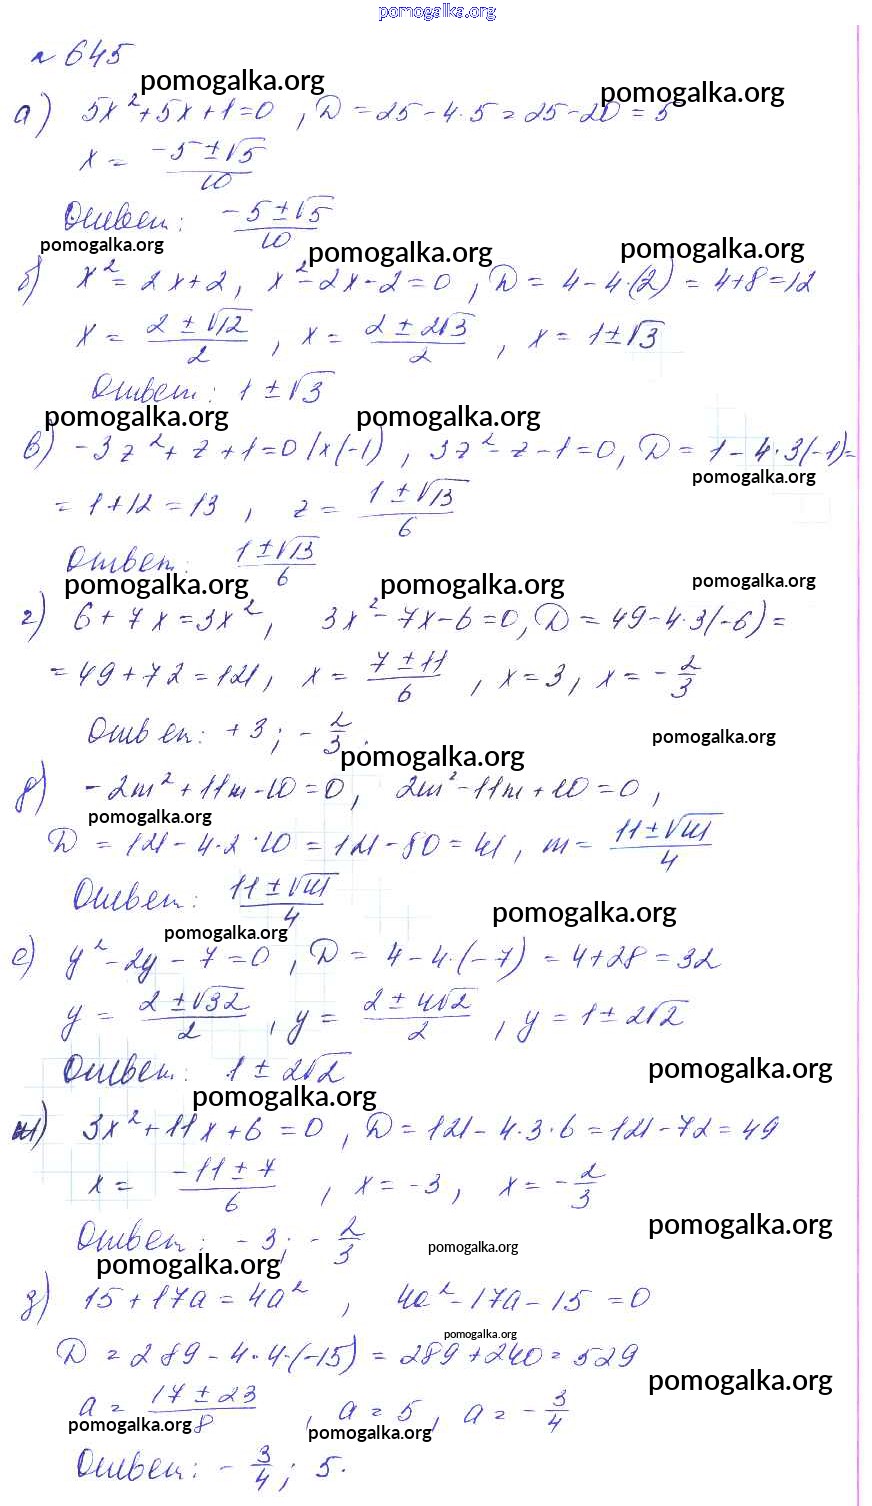 pomogalka.org
№ 645
pomogalka.org
pomogalka.org
а) 5x² + 5x + 1 = 0 , D = 25 - 4·5 = 25 - 20 = 5
x = (-5 ± √5)/10
Ответ: (-5 ± √5)/10
pomogalka.org pomogalka.org pomogalka.org
б) x² = 2x + 2, x² - 2x - 2 = 0 , D = 4 - 4·(2) = 4 + 8 = 12
x = (2 ± √12)/2 , x = (2 ± 2√3)/2 , x = 1 ± √3
Ответ: 1 ± √3
pomogalka.org pomogalka.org
в) -3z² + z + 1 = 0 |x(-1) , 3z² - z - 1 = 0, D = 1 - 4·3(-1) =
pomogalka.org
= 1 + 12 = 13 , z = (1 ± √13)/6
Ответ: (1 ± √13)/6
pomogalka.org pomogalka.org pomogalka.org
г) 6 + 7x = 3x², 3x² - 7x - 6 = 0, D = 49 - 4·3(-6) =
= 49 + 72 = 121, x = (7 ± 11)/6 , x = 3, x = -2/3
Ответ: +3; -2/3.
pomogalka.org
pomogalka.org
д) -2m² + 11m - 10 = 0, 2m² - 11m + 10 = 0 ,
pomogalka.org
D = 121 - 4·2·10 = 121 - 80 = 41 , m = (11 ± √41)/4
Ответ: (11 ± √41)/4
pomogalka.org
pomogalka.org
е) y² - 2y - 7 = 0 , D = 4 - 4·(-7) = 4 + 28 = 32
y = (2 ± √32)/2 , y = (2 ± 4√2)/2 , y = 1 ± 2√2
Ответ: 1 ± 2√2
pomogalka.org
pomogalka.org
ж) 3x² + 11x + 6 = 0 , D = 121 - 4·3·6 = 121 - 72 = 49
x = (-11 ± 7)/6 , x = -3, x = -2/3
pomogalka.org
Ответ: -3; -2/3
pomogalka.org
pomogalka.org
з) 15 + 17a = 4a² , 4a² - 17a - 15 = 0
pomogalka.org
D = 289 - 4·4·(-15) = 289 + 240 = 529
pomogalka.org
a = (17 ± 23)/8 , a = 5, a = -3/4
pomogalka.org pomogalka.org
Ответ: -3/4; 5.